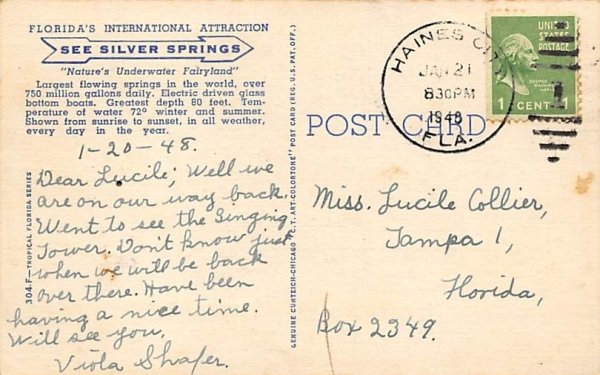 FLORIDA'S INTERNATIONAL ATTRACTION
SEE SILVER SPRINGS
"Nature's Underwater Fairyland"
Largest flowing springs in the world, over
750 million gallons daily. Electric driven glass
bottom boats. Greatest depth 80 feet. Tem-
perature of water 72° winter and summer.
Shown from sunrise to sunset, in all weather,
every day in the year.
1-20-48.
Dear Lucile; Well we
are on our way back
Went to see the Singing
Tower. Don't know just
when we will be back
over there. Have been
having a nice time.
Will see you.
Viola Shafer.
304.F—TROPICAL FLORIDA SERIES
GENUINE CURTEICH-CHICAGO "C.T. ART-COLORTONE" POST CARD (REG. U.S. PAT. OFF.)
POST CARD
HAINES CITY
JAN 21
8 30 PM
1948
FLA.
UNITED
STATES
POSTAGE
GEORGE
WASHINGTON
1 CENT 1
Miss. Lucile Collier,
Tampa 1,
Florida,
Box 2349.